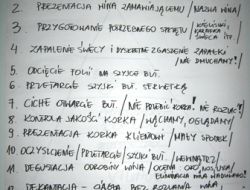 2. PREZENTACJA WINA ZAMAWIAJĄCEMU / NAZWA WINA /
3. PRZYGOTOWANIE POTRZEBNEGO SPRZĘTU / KIELISZKI, KARAFKA, ŚWIECA ITP.
4. ZAPALENIE ŚWIECY I DYSKRETNE ZGASZENIE ZAPAŁKI / NIE DMUCHAMY! /
5. ODCIĘCIE FOLII NA SZYJCE BUT.
6. PRZETARCIE SZYJKI BUT. SERWETKĄ
7. CICHE OTWARCIE BUT. / NIE PRZEBIĆ KORKA! NIE ROZLAĆ! /
8. KONTROLA JAKOŚCI KORKA / WĄCHAMY, OGLĄDAMY /
9. PREZENTACJA KORKA KLIENTOWI / MAŁY SPODEK /
10. OCZYSZCZENIE / PRZETARCIE / SZYJKI BUT. / WEWNĄTRZ /
11. DEGUSTACJA ODROBINY WINA / OCENA OKO, NOS, USTA
DEKANTACJA - OSOBA BEZ